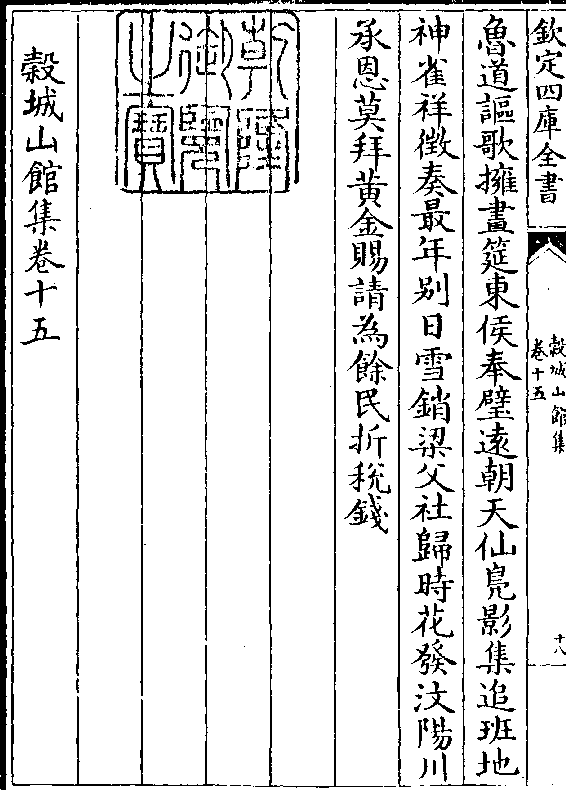 欽定四庫全書
穀城山館集
卷十五
十八
魯道謳歌擁畫筵東侯奉璧遠朝天仙鳧影集追班地
神雀祥徵奏最年別日雪銷梁父社歸時花發汶陽川
承恩莫拜黃金賜請為餘民折稅錢
乾隆御覽之寶
穀城山館集卷十五